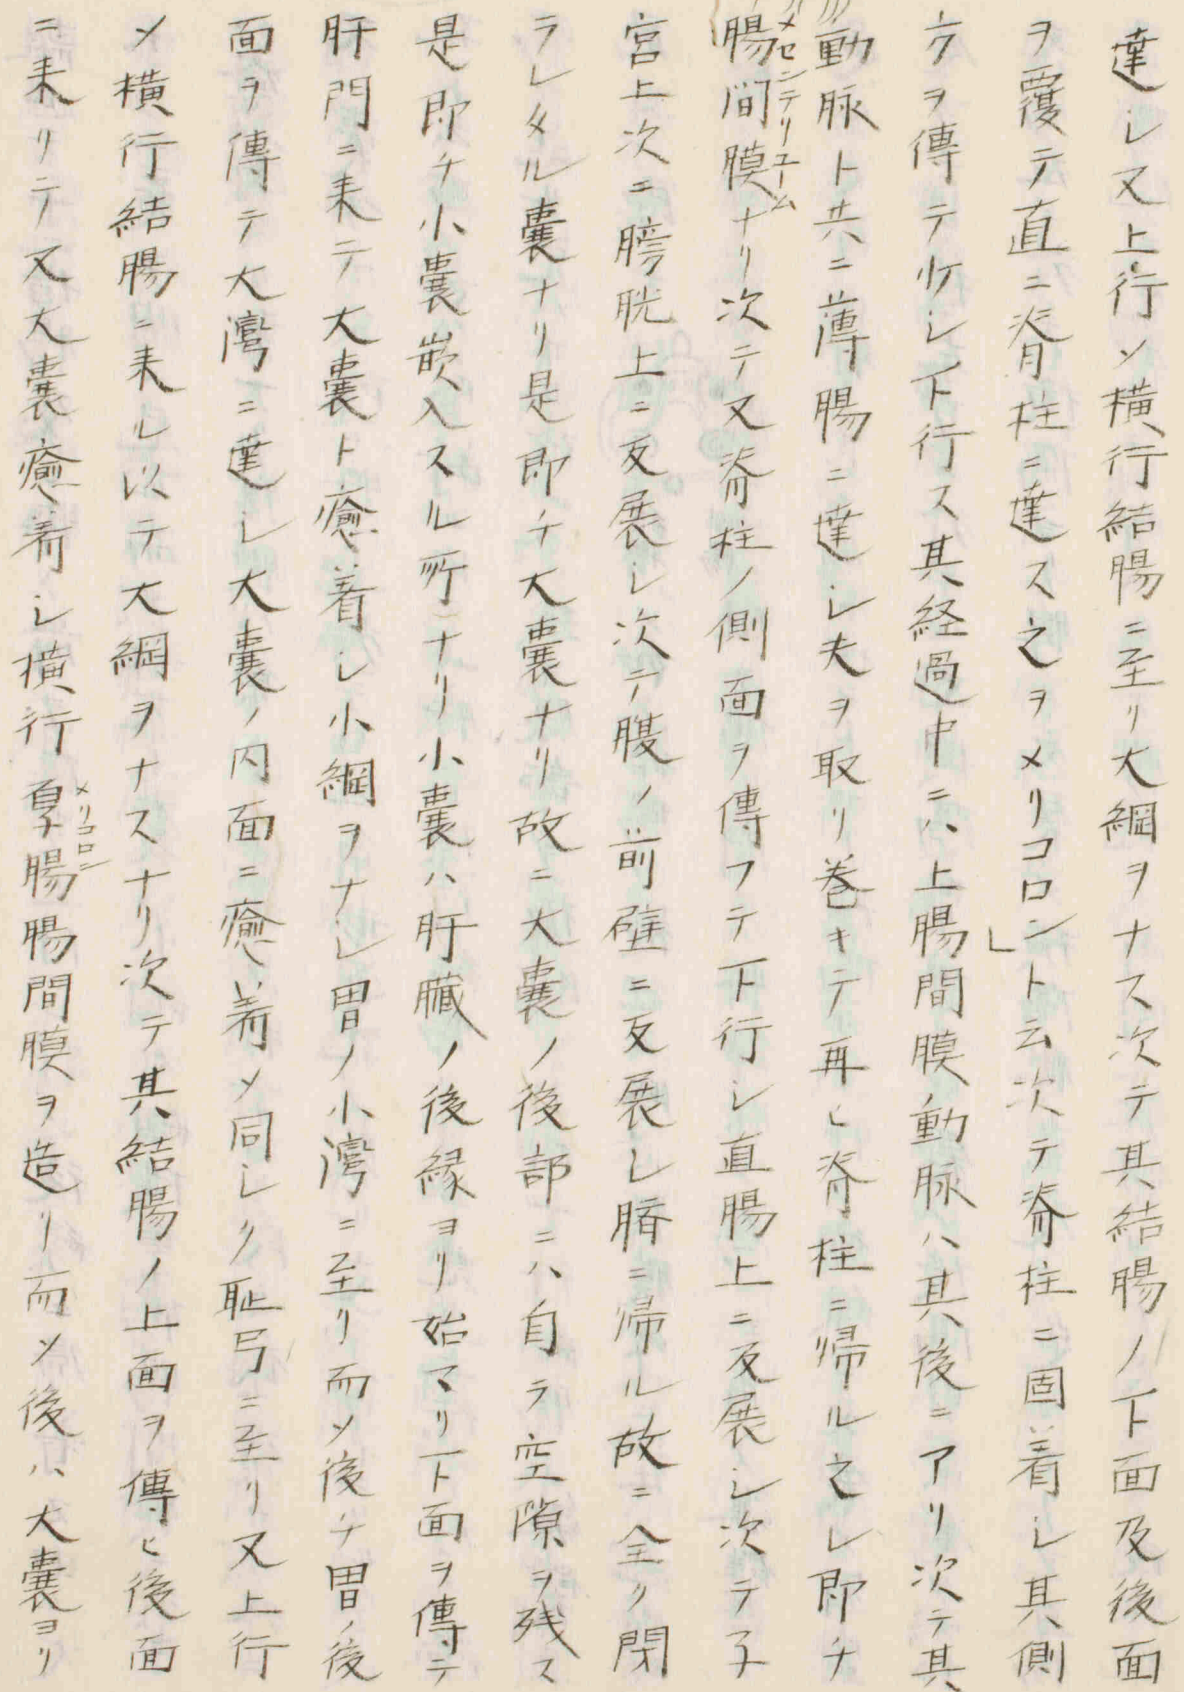 達シ又上行ソ横行結腸ニ至リ大綱ヲナス次テ其結腸ノ下面及後面
ヲ覆テ直ニ脊柱ニ達ス之ヲメリコロント云次テ脊柱ニ固着シ其側
方ヲ傳テ少シ下行ス其経過中ニハ上腸間膜動脉ハ其後ニアリ次テ其
動脉ト共ニ薄腸ニ達シ夫ヲ取リ巻キテ再ヒ脊柱ニ帰ル之レ即チ
メセンテリユーム
腸間膜ナリ次テ又脊柱ノ側面ヲ傳フテ下行シ直腸上ニ反展シ次テ子
宮上次ニ膀胱上ニ反展シ次テ腹ノ前壁ニ反展シ臍ニ帰ル故ニ全ク閉
ラレタル囊ナリ是即チ大囊ナリ故ニ大囊ノ後部ニハ自ラ空隙ヲ残ス
是即チ小囊嵌入スル所ナリ小囊ハ肝臓ノ後縁ヨリ始マリ下面ヲ傳テ
肝門ニ耒テ大囊ト癒着シ小綱ヲナシ胃ノ小灣ニ至リ而メ後チ胃ノ後
面ヲ傳テ大灣ニ達シ大囊ノ内面ニ癒着メ同シク耻弓ニ至リ又上行
メ横行結腸ニ耒ル以テ大綱ヲナスナリ次テ其結腸ノ上面ヲ傳ヒ後面
メリコロン
ニ耒リテ又大囊癒着シ横行厚腸腸間膜ヲ造リ而メ後ハ大囊ヨリ